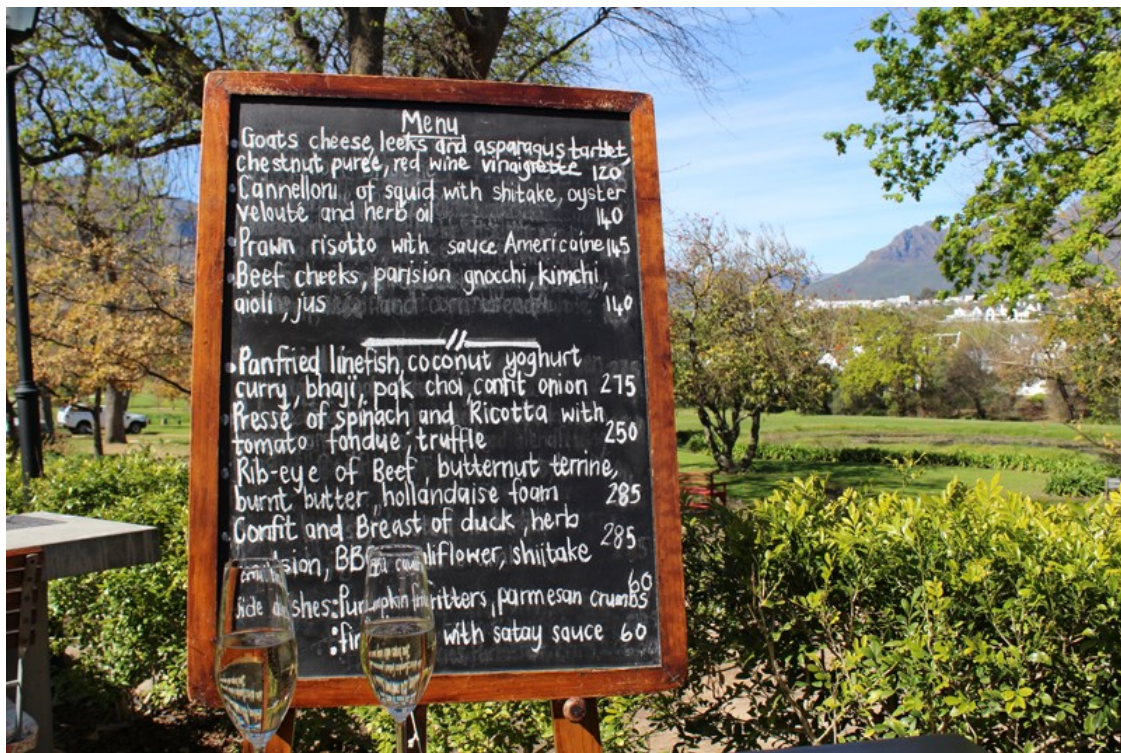 Menu
Goats cheese, leeks and asparagus tartlet,
chestnut purée, red wine vinaigrette 120
Cannelloni of squid with shitake, oyster
velouté and herb oil 140
Prawn risotto with sauce Americaine 145
Beef cheeks, parision gnocchi, kimchi,
aioli, jus 140
Panfried linefish, coconut yoghurt
curry, bhaji, pak choi, confit onion 275
Presse of spinach and Ricotta with
tomato fondue, truffle 250
Rib-eye of Beef, butternut terrine,
burnt butter, hollandaise foam 285
Confit and Breast of duck, herb
285
BBQ cauliflower, shiitake
60
Side dishes: Pumpkin fritters, parmesan crumbs
: with satay sauce 60